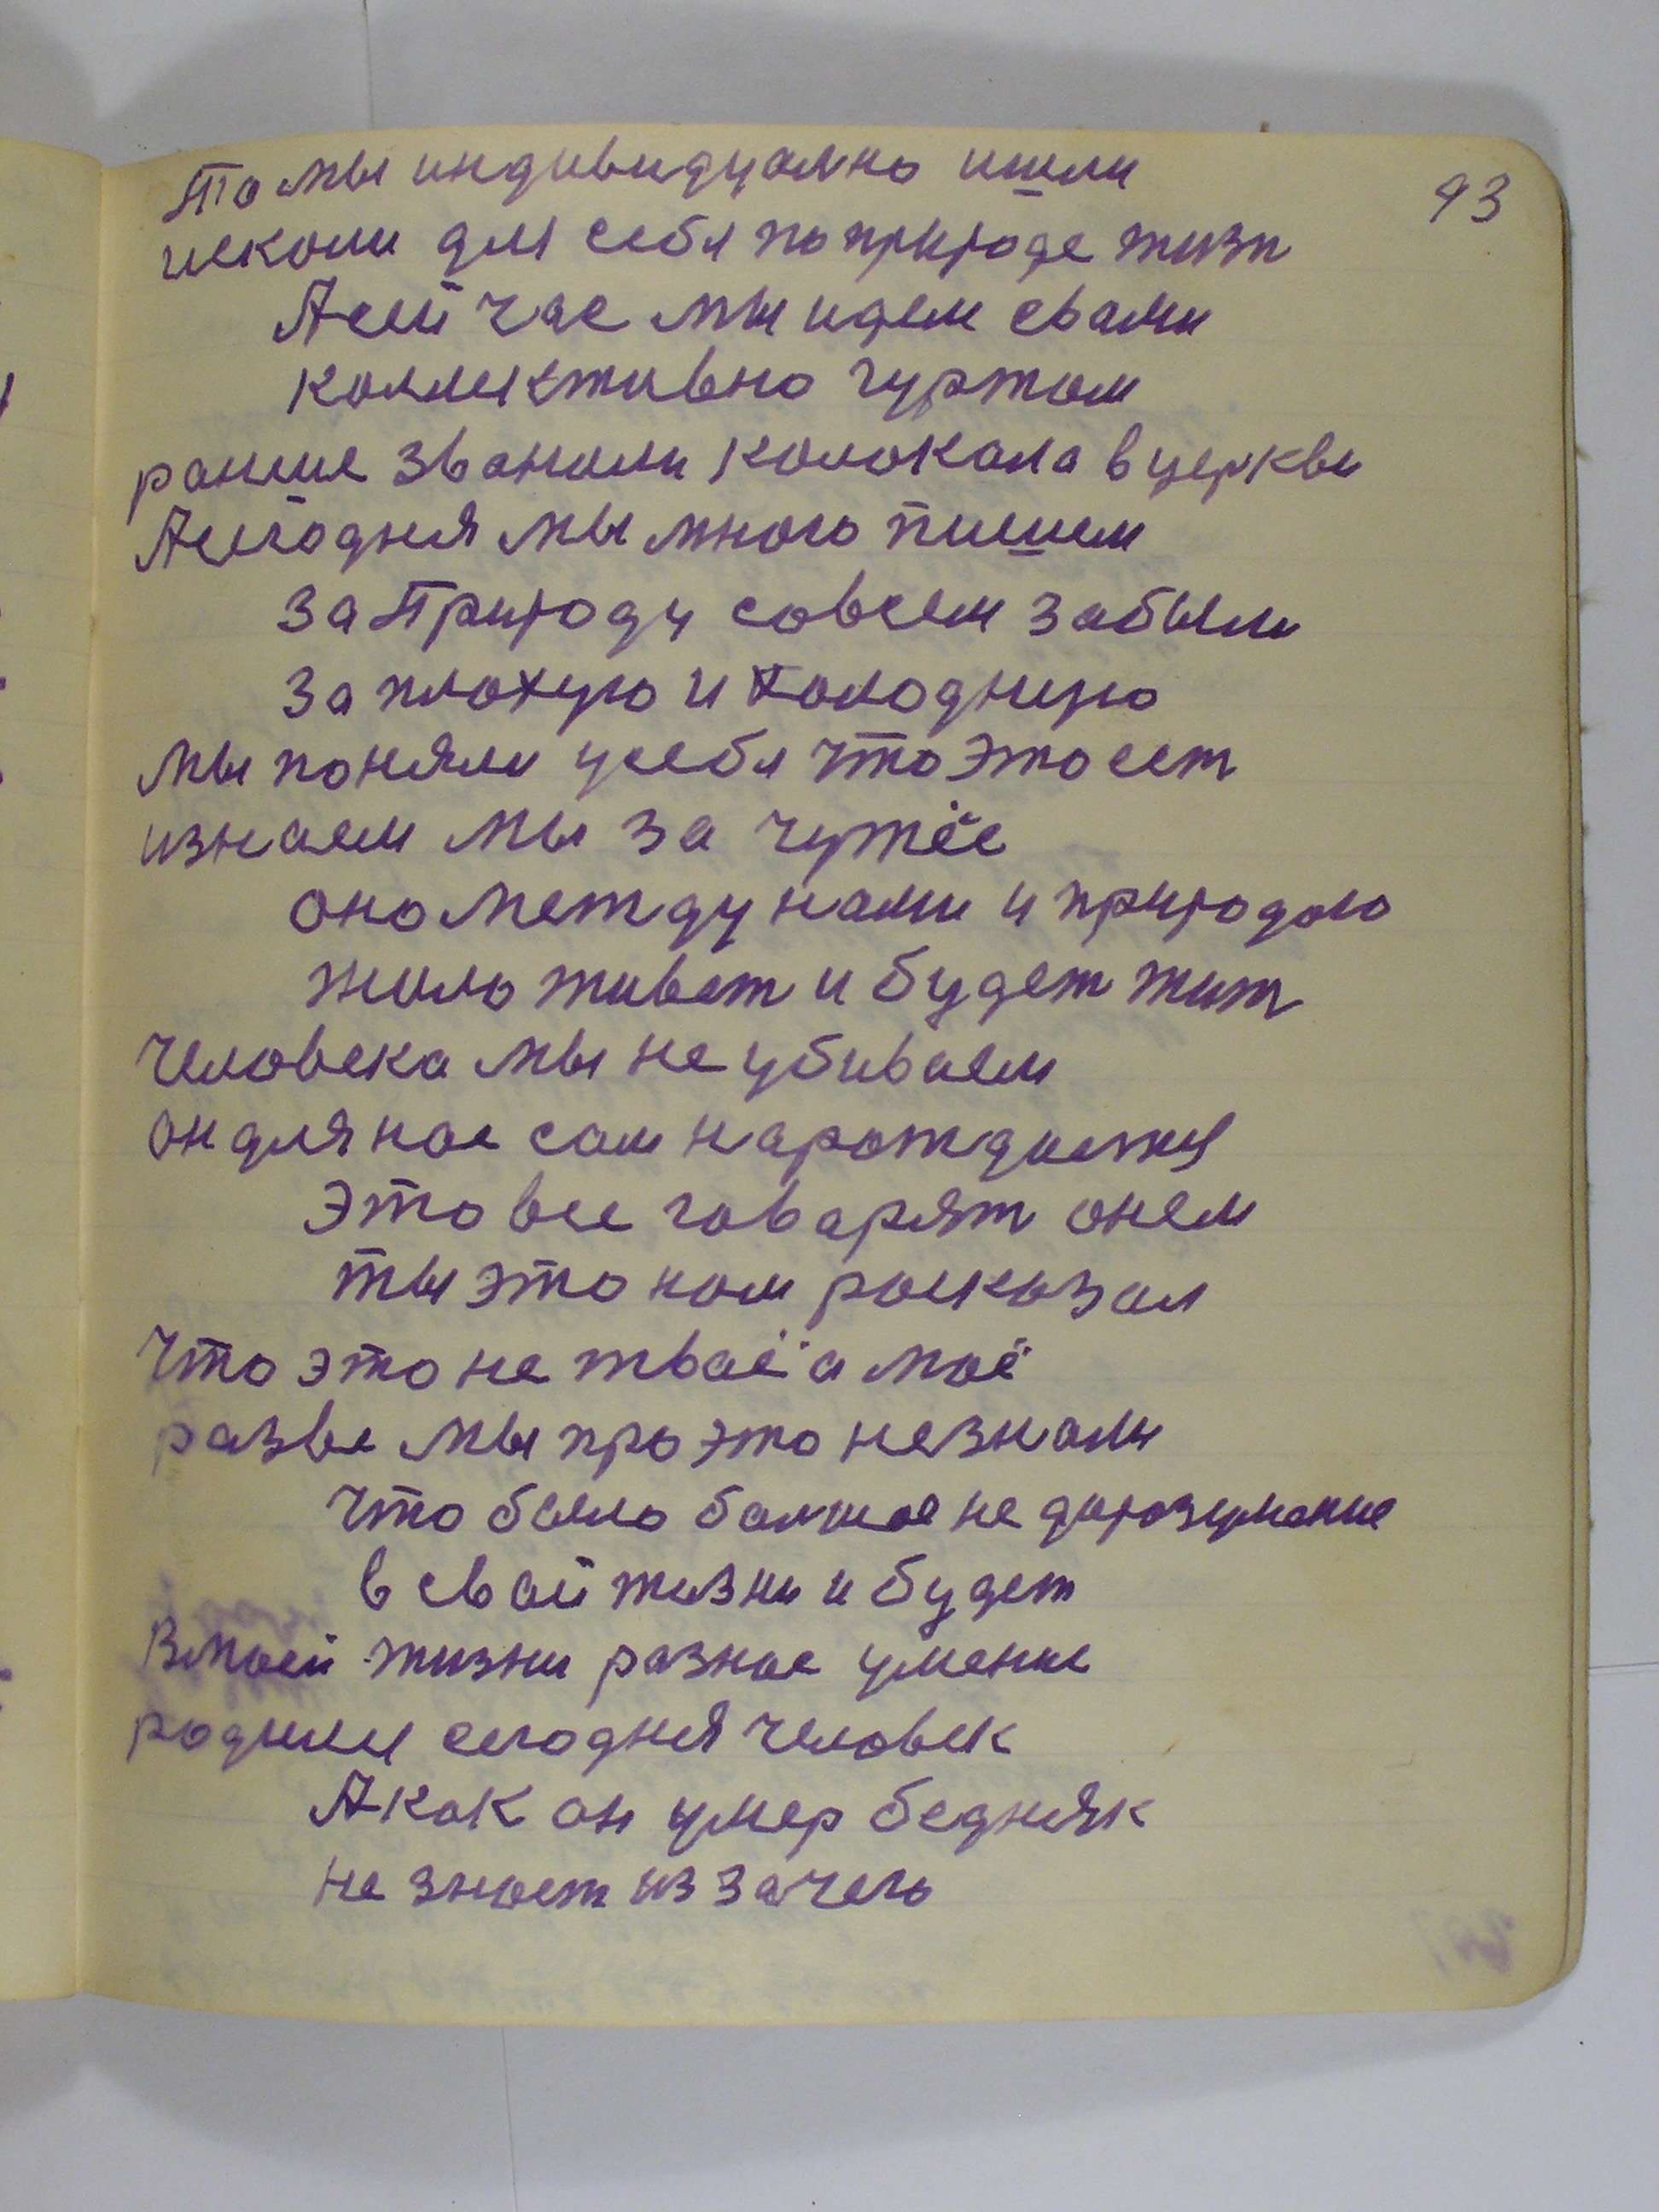 93
То мы индивидуално ишли
искали для себя по природе жизн
А сей час мы идем свами
коллективно гуртом
ранше званили колокала в церкви
А сегодня мы много пишем
за Природу совсем забыли
за плохую и холодную
мы поняли усебя что это ест
изнаем мы за чужёе
оно между нами и природаю
жило живет и будет жит
человека мы не убиваем
он для нас сам нарождается
это все говарят онем
ты это нам расказал
что это не тваё а моё
разве мы про это незнали
что было балшое не диразумение
в свай жизни и будет
В моей жизни разное умение
родился сегодня человек
А как он умер бедняк
не знает из за чего